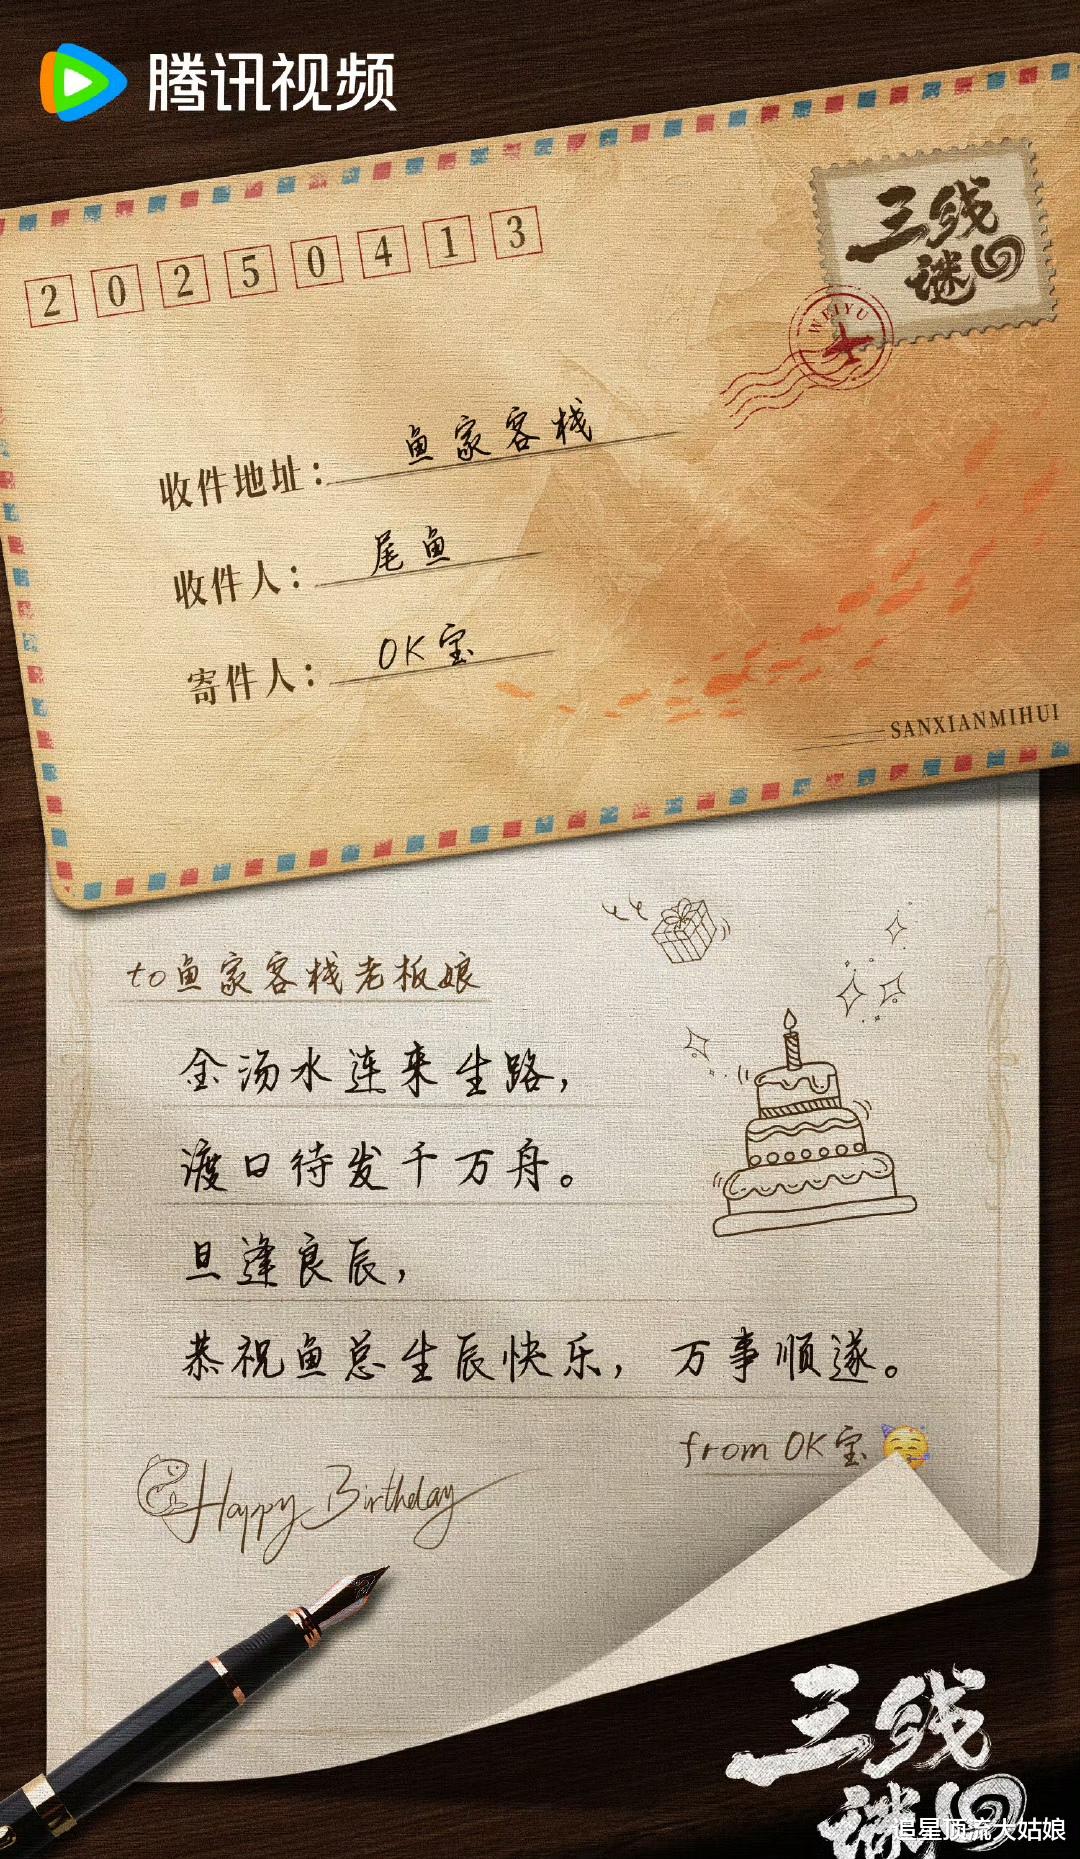 腾讯视频
20250413
三线
谜回
WEIYU
收件地址：鱼家客栈
收件人：尾鱼
寄件人：OK宝
SANXIANMIHUI
to鱼家客栈老板娘
金汤水连来生路，
渡口待发千万舟。
旦逢良辰，
恭祝鱼总生辰快乐，万事顺遂。
from OK宝
Happy Birthday
三线
谜回
追星顶流大姑娘